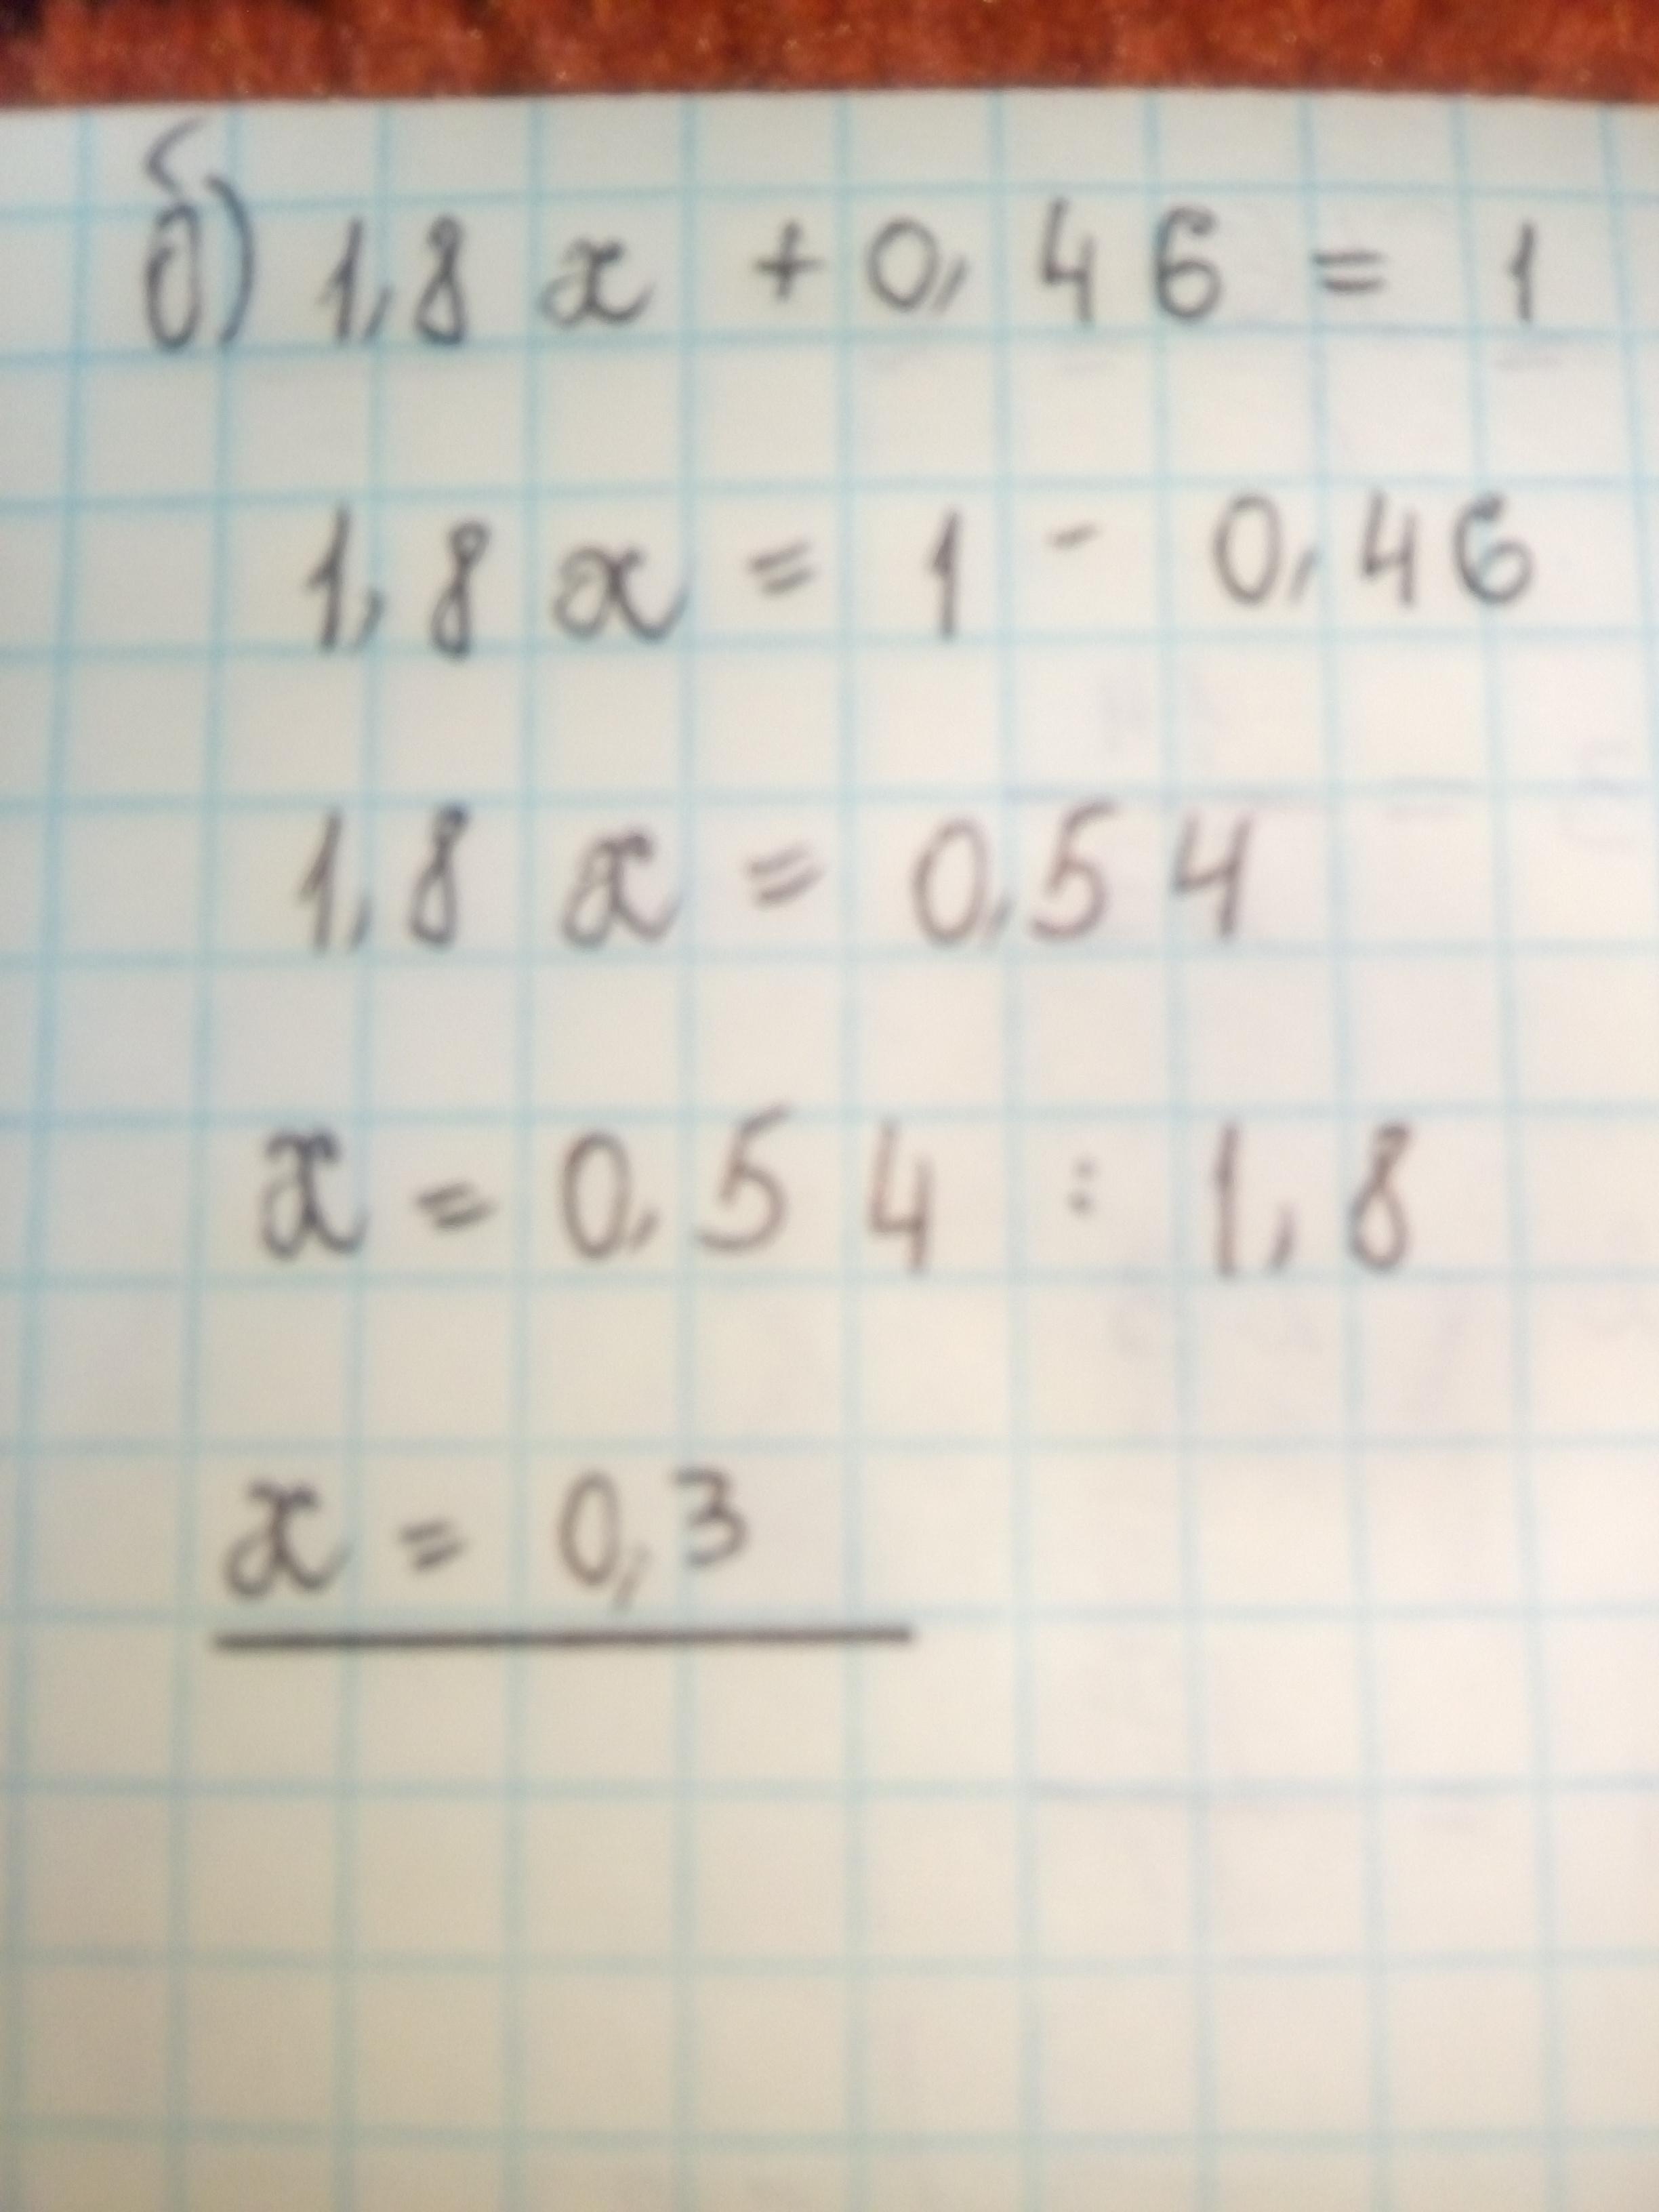 б) 1,8 x + 0,46 = 1
1,8 x = 1 - 0,46
1,8 x = 0,54
x = 0,54 : 1,8
x = 0,3